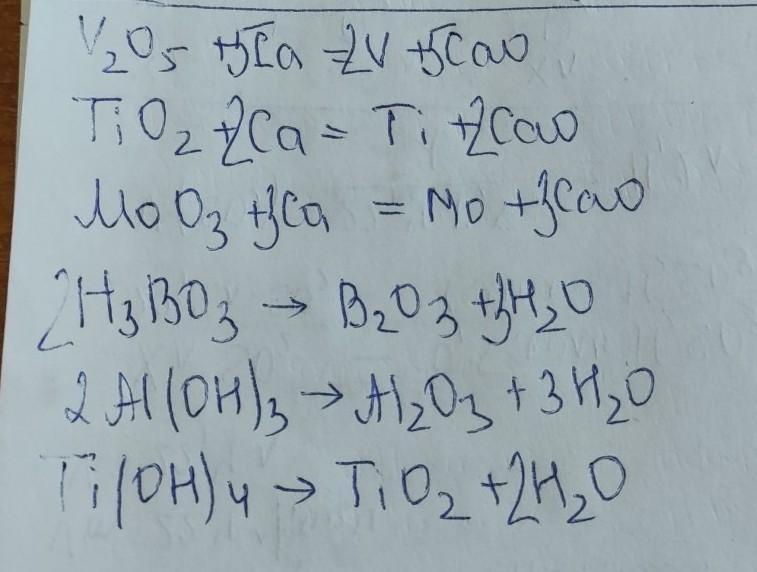 V₂O₅ +5Ca =2V +5CaO
TiO₂ +2Ca = Ti +2CaO
MoO₃ +3Ca = Mo +3CaO
2H₃BO₃ → B₂O₃ +3H₂O
2Al(OH)₃ → Al₂O₃ + 3H₂O
Ti(OH)₄ → TiO₂ +2H₂O